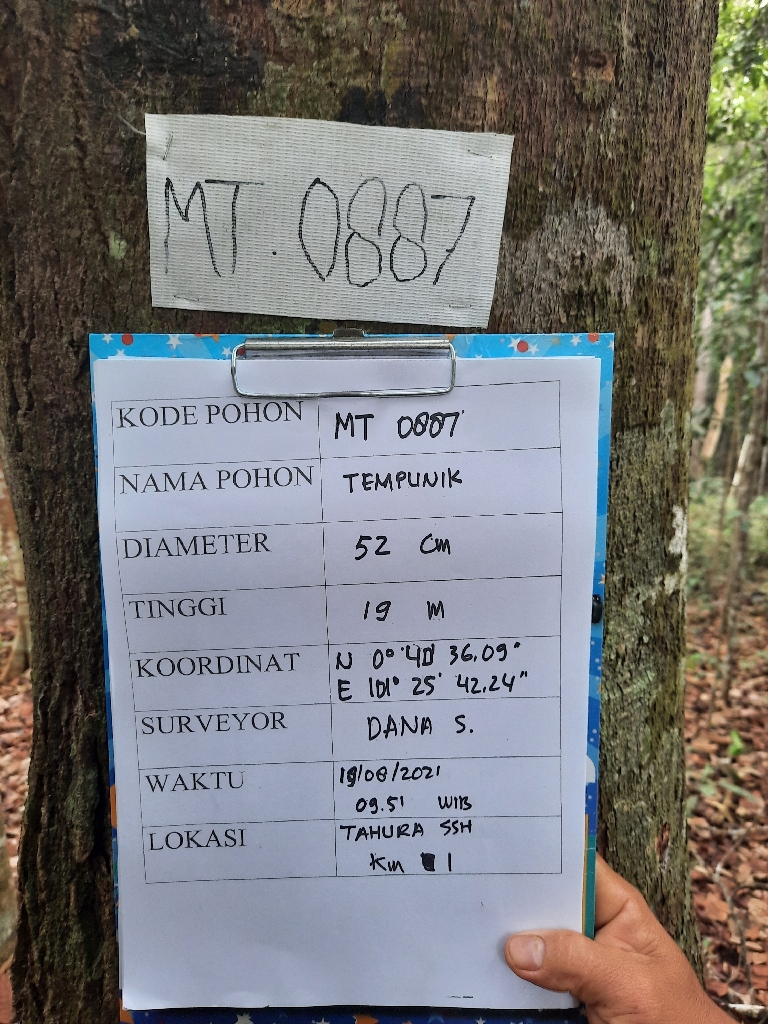 MT. 0887
KODE POHON MT 0887
NAMA POHON TEMPUNIK
DIAMETER 52 Cm
TINGGI 19 M
KOORDINAT N 0° 40' 36.09"
E 101° 25' 42.24"
SURVEYOR DANA S.
WAKTU 19/08/2021
09.51 WIB
LOKASI TAHURA SSH
Km 1